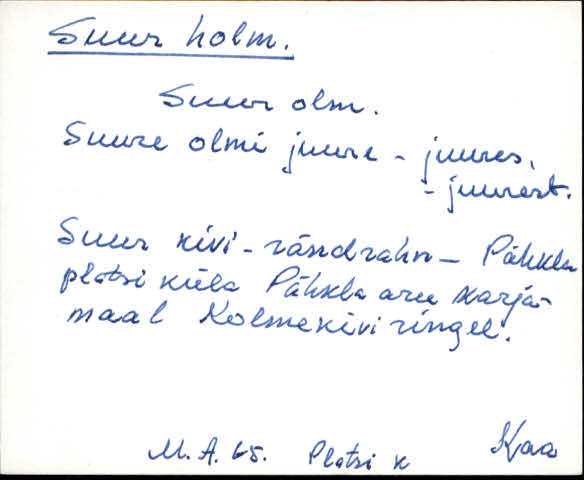 Suur holm.
Suur olm.
Suure olmi juure - juures,
- juurest.
Suur kivi - rändrahn - Pähkla
platsi küla Pähkla aru karja-
maal Kolmekivi ringel.
M. A. 65. Platsi k Kaa